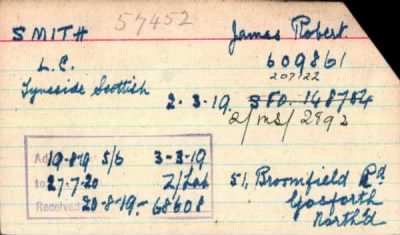 57452
SMITH James Robert.
L.C. 609861
207/22
Tyneside Scottish 2.3.19. SFO. 148764
2/MS/2992
19-8-19 5/6 3-3-19
to 27-7-20 Z/Lab 51, Broomfield Rd
Received 20-8-19.- 68608 Gosforth
North'd